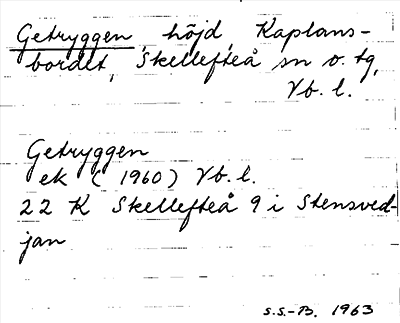 Getryggen, höjd, Kaplans-
bordet, Skellefteå sn o. tg,
Vb. l.
Getryggen
ek (1960) Vb. l.
22 K Skellefteå 9 i Stensved-
jan
S.S.-B. 1963